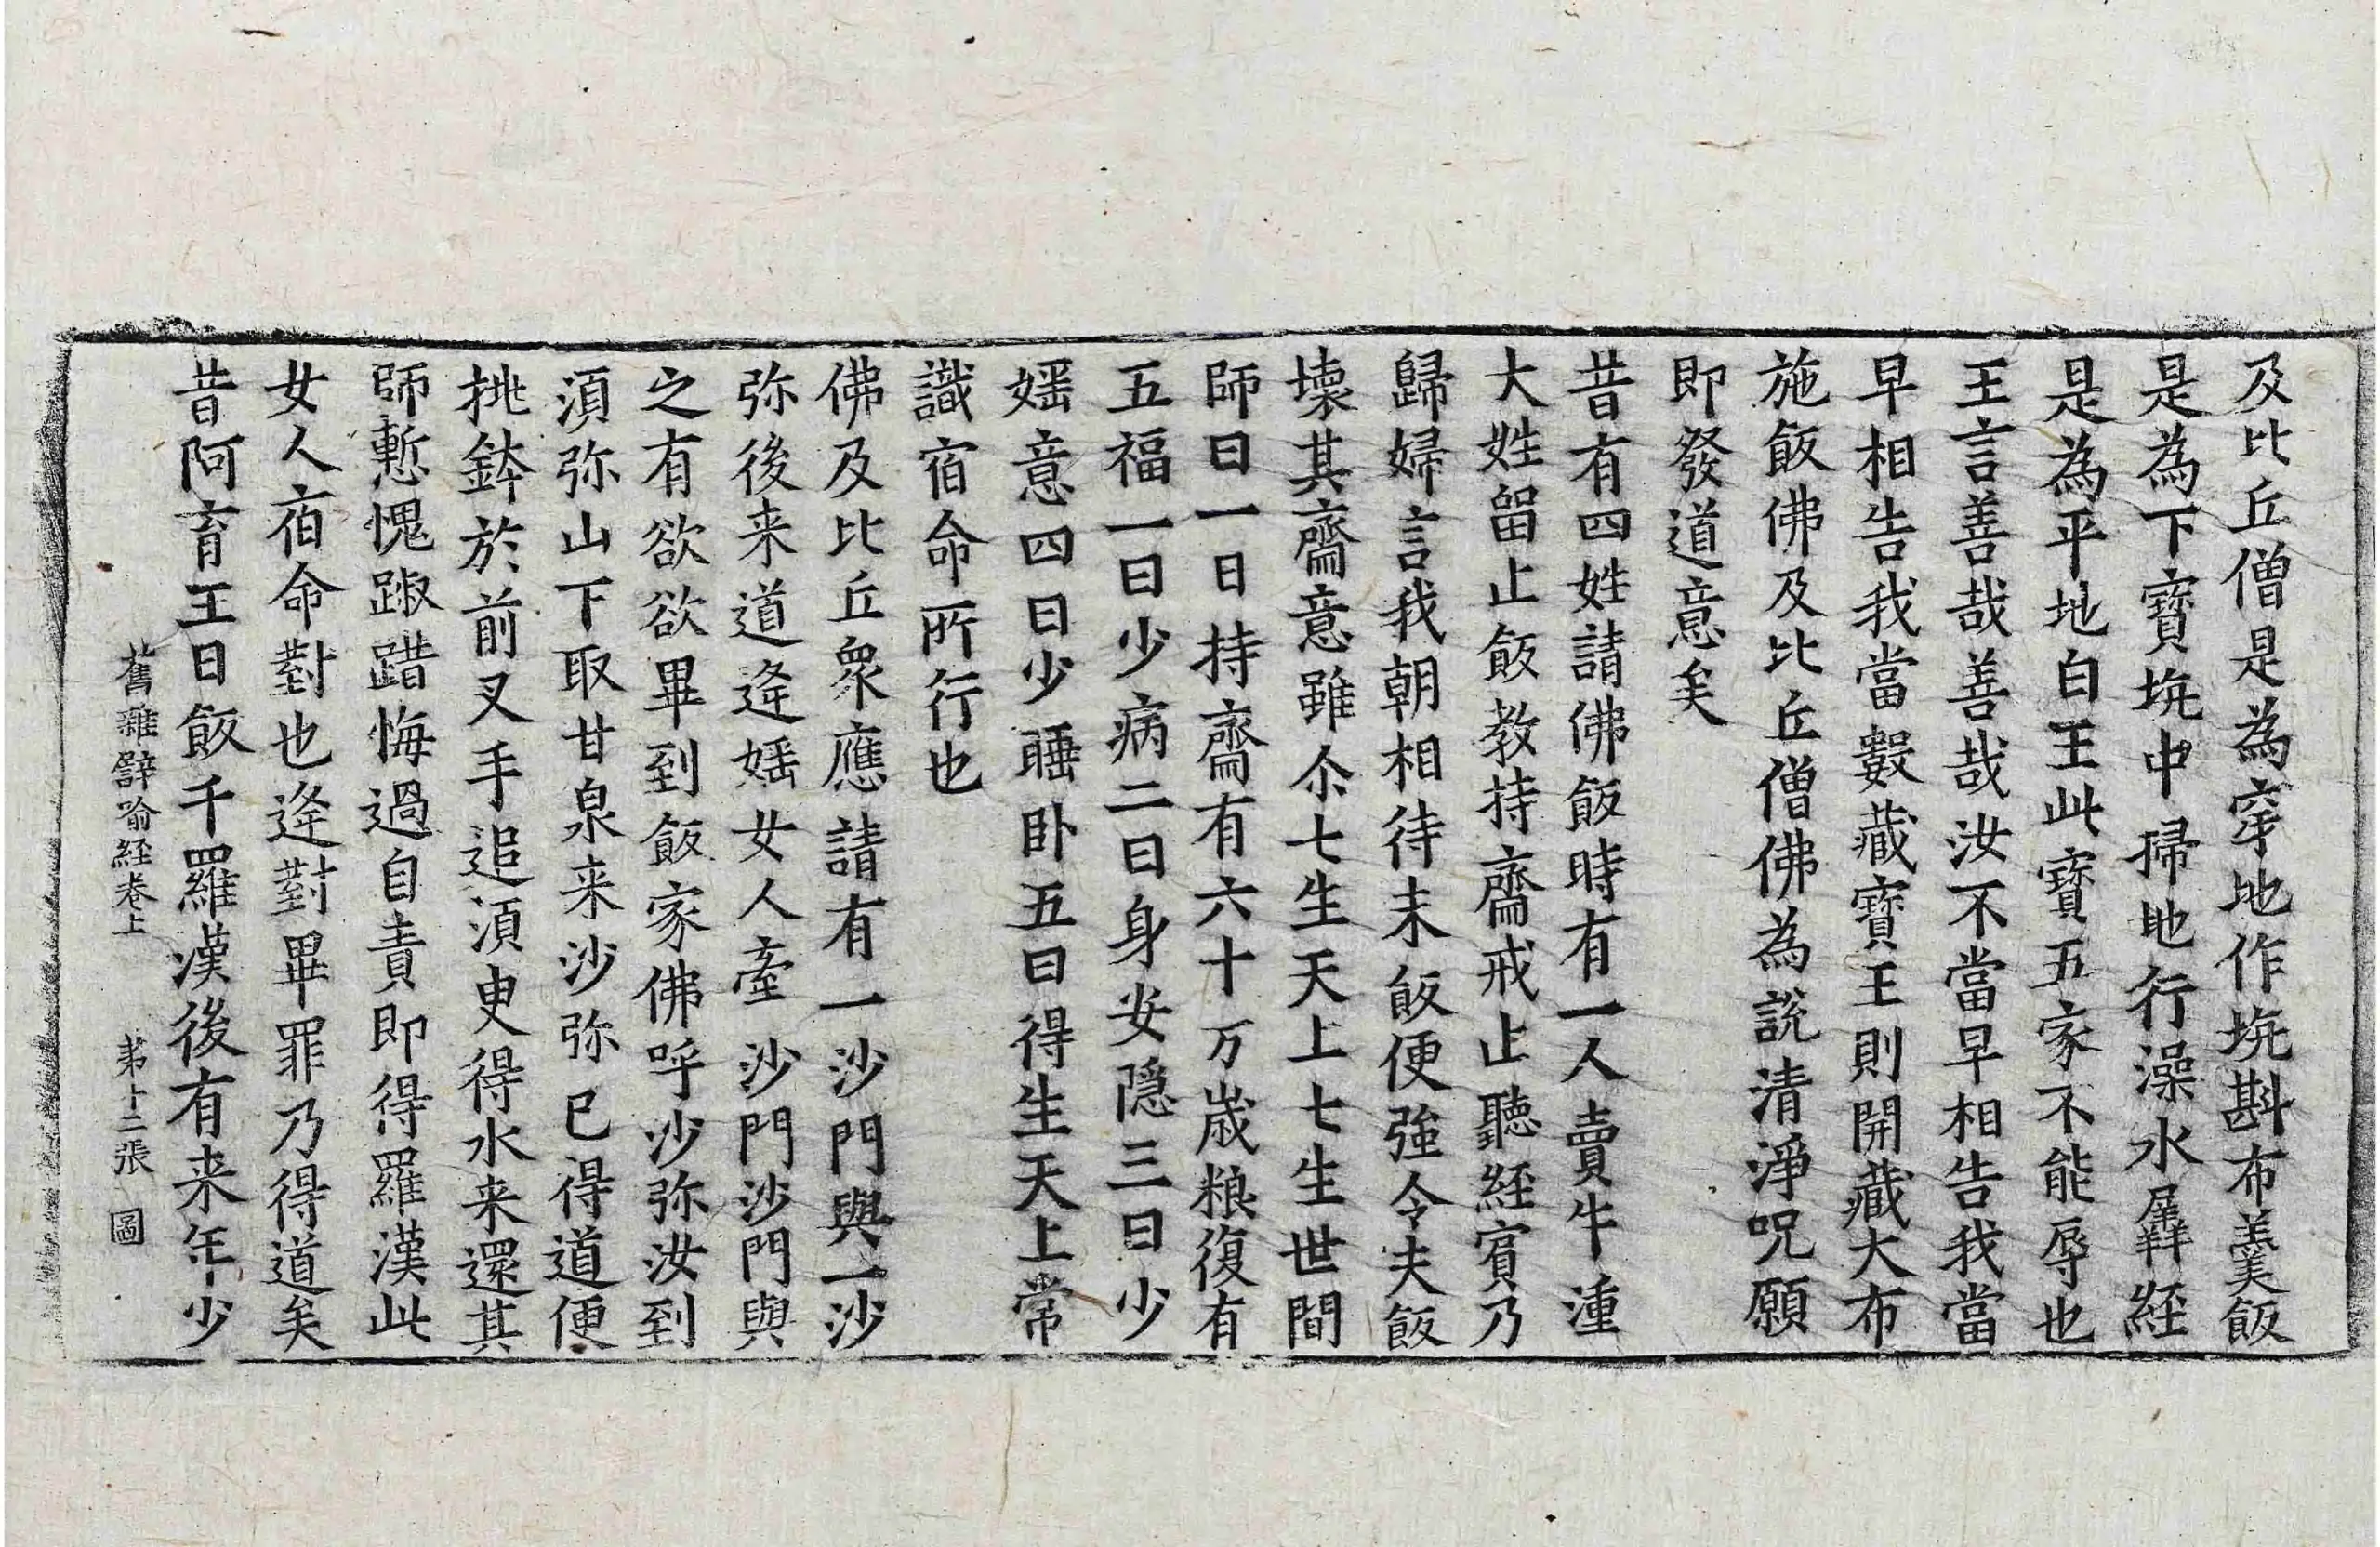 及比丘僧是為穿地作埦斟布羹飯
是為下寶埦中掃地行澡水羼經
是為平地白王此寶五家不能辱也
王言善哉善哉汝不當早相告我當
早相告我當數藏寶王則開藏大布
施飯佛及比丘僧佛為說清淨呪願
即發道意矣
昔有四姓請佛飯時有一人賣牛湩
大姓留止飯教持齋戒止聽經賔乃
歸婦言我朝相待未飯便強令夫飯
壞其齋意雖尒七生天上七生世間
師曰一日持齋有六十万歲粮復有
五福一曰少病二曰身安隱三曰少
婬意四曰少睡卧五曰得生天上常
識宿命所行也
佛及比丘衆應請有一沙門與一沙
弥後来道逄婬女人牽沙門沙門與
之有欲欲畢到飯家佛呼沙弥汝到
湏弥山下取甘泉来沙弥已得道便
挑鉢於前叉手追湏臾得水来還其
師慙愧踧踖悔過自責即得羅漢此
女人宿命對也逄對畢罪乃得道矣
昔阿育王日飯千羅漢後有来年少
舊雜譬喻經卷上　第十二張　圖